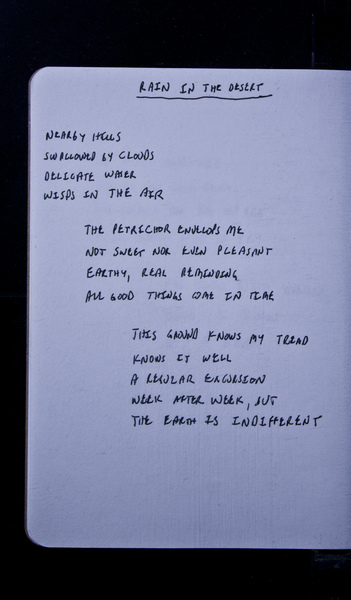 RAIN IN THE DESERT
NEARBY HILLS
SWALLOWED BY CLOUDS
DELICATE WATER
WISPS IN THE AIR
THE PETRICHOR ENVELOPS ME
NOT SWEET NOR EVEN PLEASANT
EARTHY, REAL REMINDING
ALL GOOD THINGS COME IN TIME
THIS GROUND KNOWS MY TREAD
KNOWS IT WELL
A REGULAR EXCURSION
WEEK AFTER WEEK, BUT
THE EARTH IS INDIFFERENT